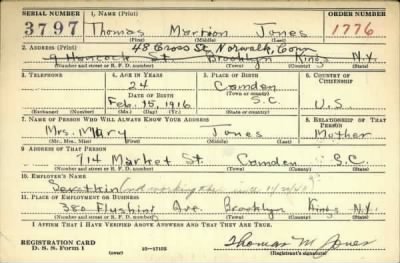 SERIAL NUMBER 1. NAME (Print) ORDER NUMBER
3797 Thomas Marrion Jones 1776
(First) (Middle) (Last)
2. ADDRESS (Print) 48 Cross St. Norwalk, Conn
9 Hancock St. Brooklyn Kings N.Y.
(Number and street or R. F. D. number) (Town) (County) (State)
3. TELEPHONE 4. AGE IN YEARS 5. PLACE OF BIRTH 6. COUNTRY OF CITIZENSHIP
24 Camden
DATE OF BIRTH (Town or county)
Feb. 15, 1916 S.C. U.S.
(Exchange) (Number) (Mo.) (Day) (Yr.) (State or country)
7. NAME OF PERSON WHO WILL ALWAYS KNOW YOUR ADDRESS 8. RELATIONSHIP OF THAT PERSON
Mrs. Mary Jones Mother
(Mr., Mrs., Miss) (First) (Middle) (Last)
9. ADDRESS OF THAT PERSON
714 Market St. Camden S.C.
(Number and street or R. F. D. number) (Town) (County) (State)
10. EMPLOYER'S NAME
(not working
11. PLACE OF EMPLOYMENT OR BUSINESS
380 Flushing Ave. Brooklyn Kings N.Y.
(Number and street or R. F. D. number) (Town) (County) (State)
I AFFIRM THAT I HAVE VERIFIED ABOVE ANSWERS AND THAT THEY ARE TRUE.
REGISTRATION CARD
D. S. S. Form 1 (over) Thomas M. Jones
(Registrant's signature)